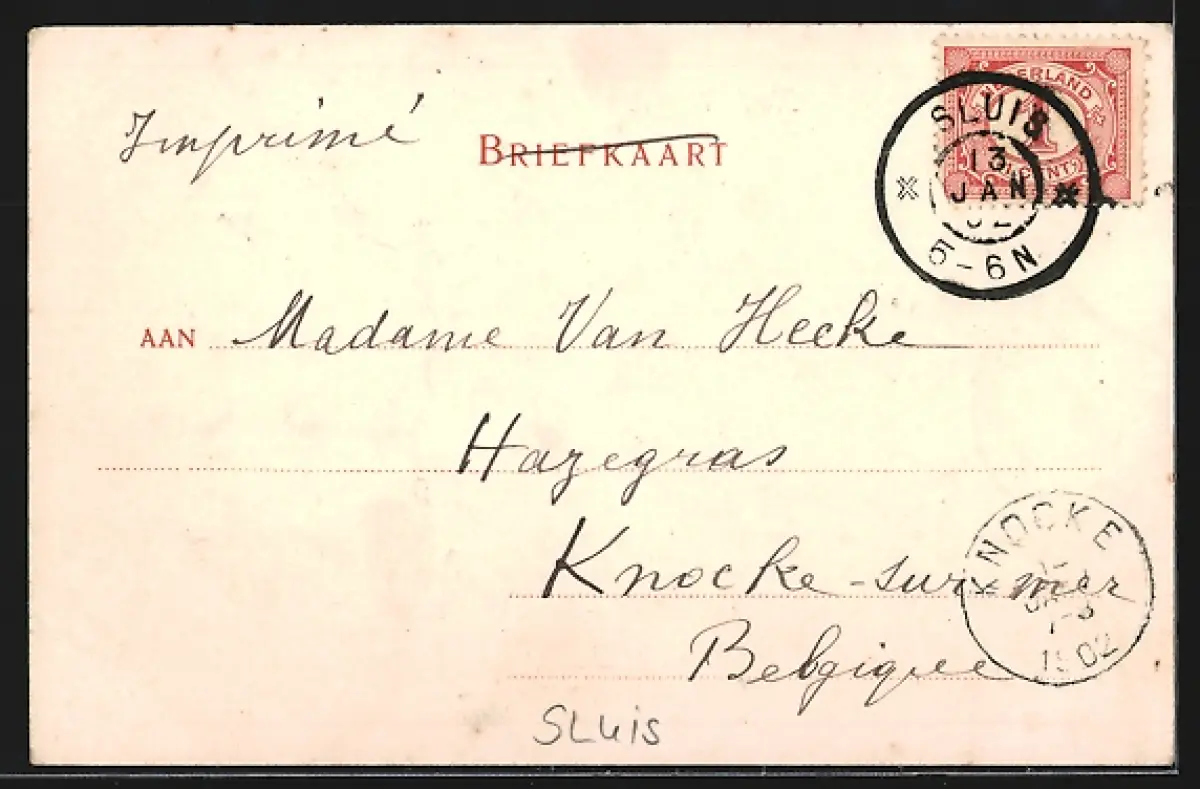 Imprimé
BRIEFKAART
NEDERLAND
1
CENT
SLUIS
13
JAN
02
5-6N
AAN Madame Van Hecke
Hazegras
Knocke-sur-mer
Belgique
KNOCKE
1902
SLuis